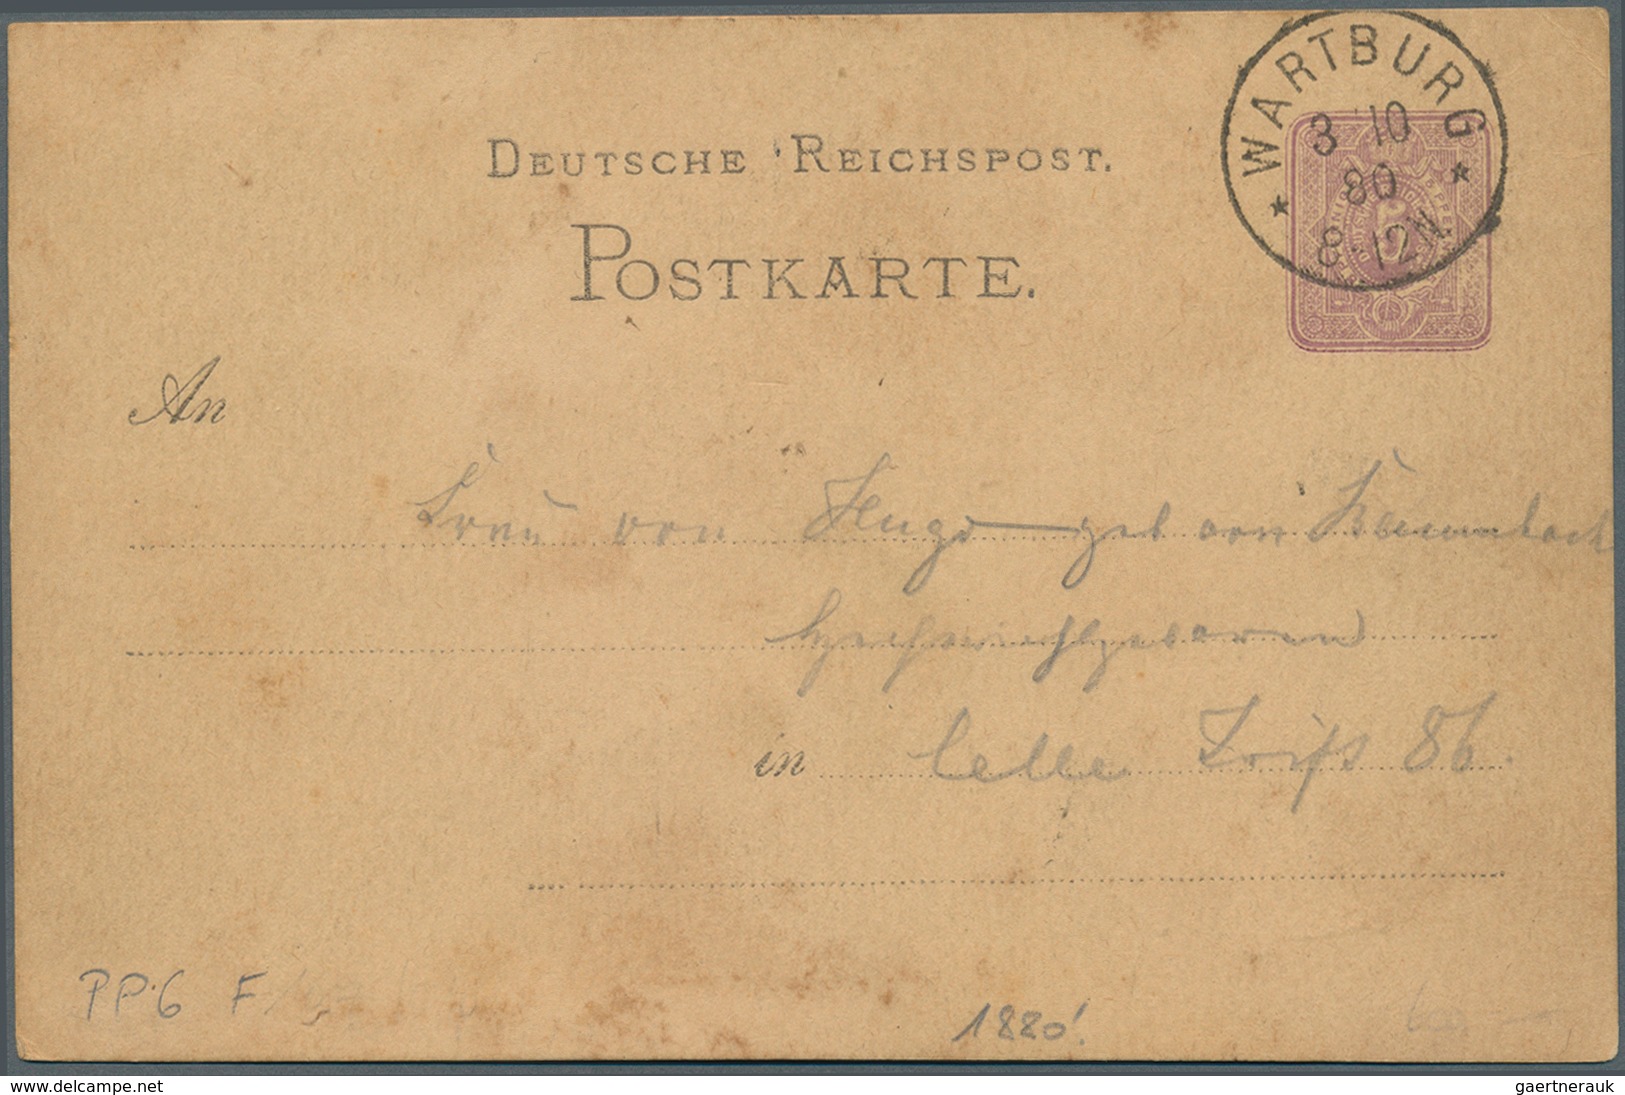 WARTBURG
3 10
80
8-12N.
DEUTSCHE REICHSPOST.
POSTKARTE.
An
Frau von Hugo geb von Baumbach
Hochwohlgeboren
in Celle Trift 86.
PP.6 F
1880!
www.delcampe.net
gaertnerauk